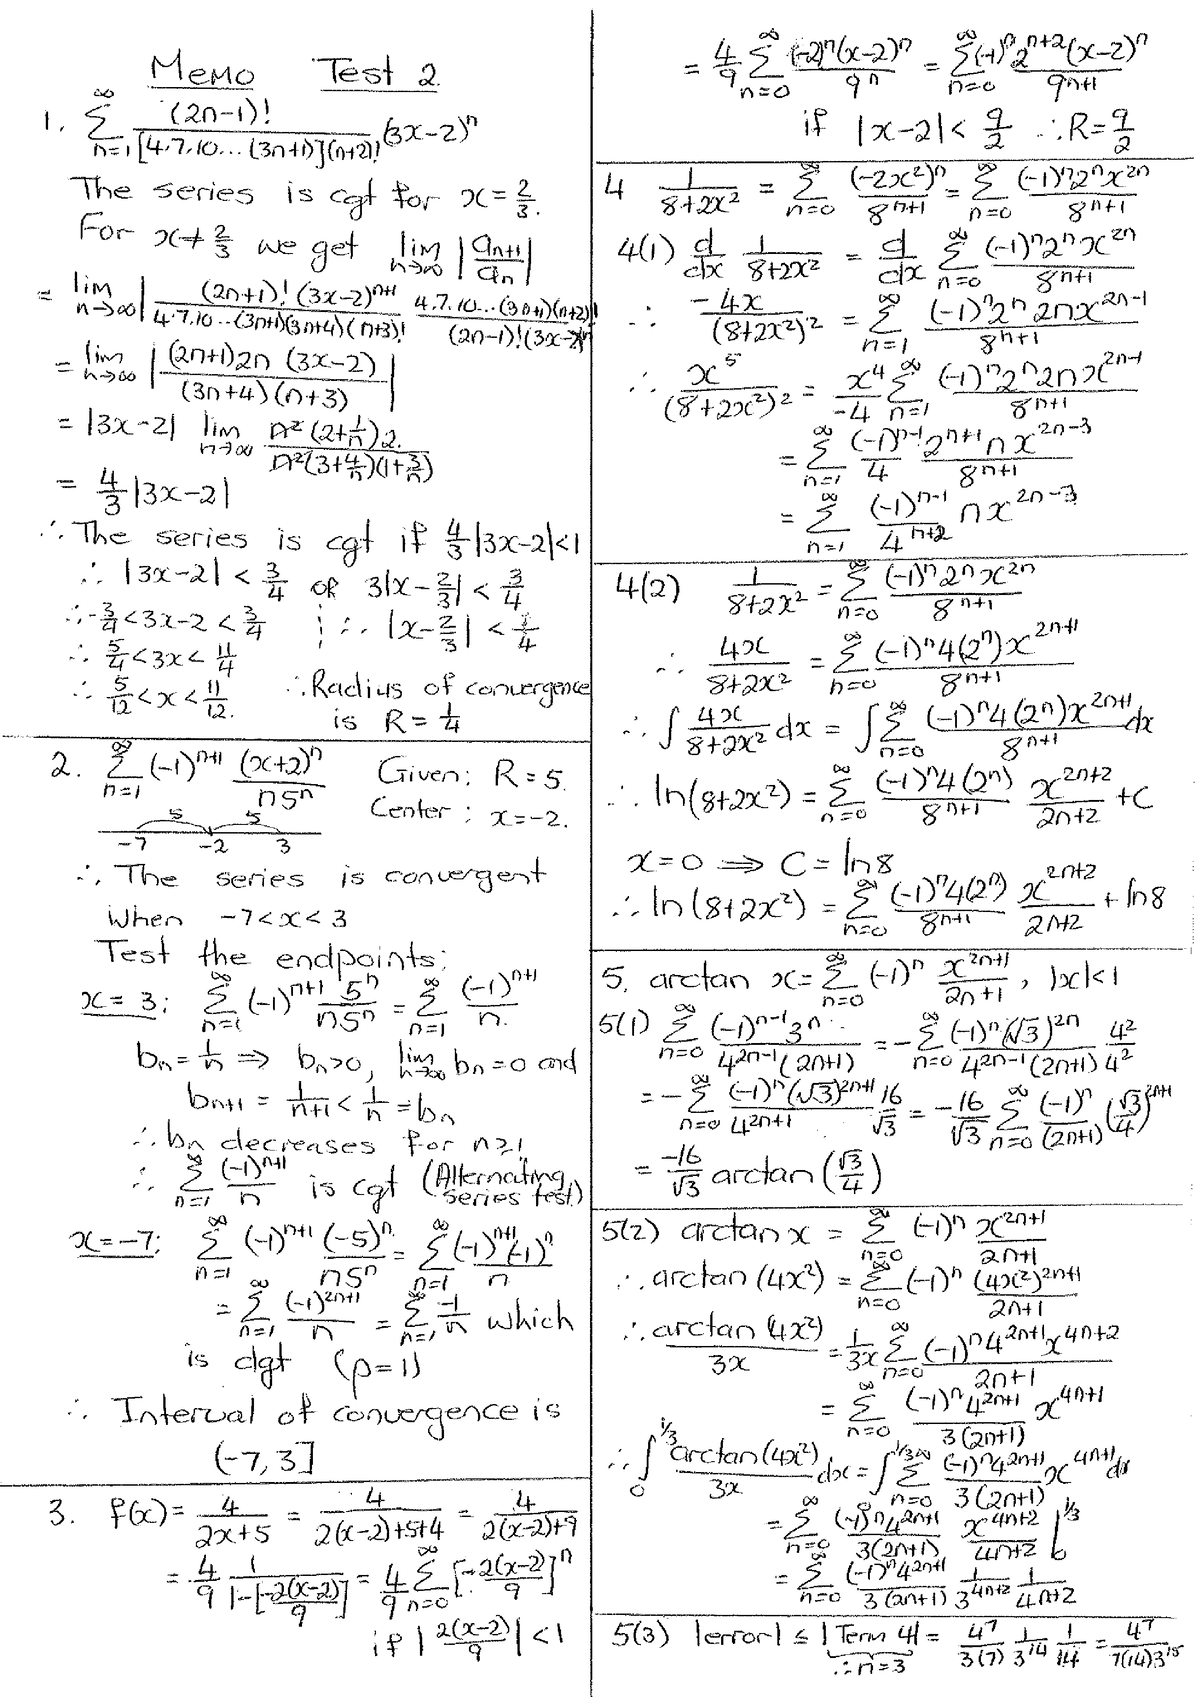 Memo Test 2
1. ∞∑n=1 (2n-1)! / [4.7.10...(3n+1)](n+2)! (3x-2)^n
The series is cgt for x = 2/3.
For x ≠ 2/3 we get lim n→∞ |a_{n+1}/a_n|
= lim n→∞ | (2n+1)! (3x-2)^{n+1} / 4.7.10...(3n+1)(3n+4)(n+3)! 4.7.10...(3n+1)(n+2)! / (2n-1)!(3x-2)^n |
= lim n→∞ | (2n+1)2n (3x-2) / (3n+4)(n+3) |
= |3x-2| lim n→∞ n²(2+1/n)2 / n²(3+4/n)(1+3/n)
= 4/3 |3x-2|
∴ The series is cgt if 4/3 |3x-2| < 1
∴ |3x-2| < 3/4 or 3|x-2/3| < 3/4
∴ -3/4 < 3x-2 < 3/4 ∴ |x-2/3| < 1/4
∴ 5/4 < 3x < 11/4
∴ 5/12 < x < 11/12. ∴ Radius of convergence
is R = 1/4
2. ∞∑n=1 (-1)^{n+1} (x+2)^n / n5^n Given: R = 5.
Center: x = -2.
5 5
-7 -2 3
∴ The series is convergent
when -7 < x < 3
Test the endpoints:
x = 3: ∞∑n=1 (-1)^{n+1} 5^n / n5^n = ∞∑n=1 (-1)^{n+1} / n.
b_n = 1/n ⇒ b_n > 0, lim n→∞ b_n = 0 and
b_{n+1} = 1/(n+1) < 1/n = b_n
∴ b_n decreases for n ≥ 1
∴ ∞∑n=1 (-1)^{n+1} / n is cgt (Alternating series test)
x = -7: ∞∑n=1 (-1)^{n+1} (-5)^n / n5^n = ∞∑n=1 (-1)^{n+1} (-1)^n / n
= ∞∑n=1 (-1)^{2n+1} / n = ∞∑n=1 -1/n which
is dgt (p=1)
∴ Interval of convergence is
(-7, 3]
3. f(x) = 4/(2x+5) = 4/(2(x-2)+5+4) = 4/(2(x-2)+9)
= 4/9 1/(1-[-2(x-2)/9]) = 4/9 ∞∑n=0 [-2(x-2)/9]^n
if |2(x-2)/9| < 1
= 4/9 ∞∑n=0 (-2)^n(x-2)^n / 9^n = ∞∑n=0 (-1)^n 2^{n+2}(x-2)^n / 9^{n+1}
if |x-2| < 9/2 ∴ R = 9/2
4 1/(8+2x²) = ∞∑n=0 (-2x²)^n / 8^{n+1} = ∞∑n=0 (-1)^n 2^n x^{2n} / 8^{n+1}
4(1) d/dx 1/(8+2x²) = d/dx ∞∑n=0 (-1)^n 2^n x^{2n} / 8^{n+1}
∴ -4x/(8+2x²)² = ∞∑n=1 (-1)^n 2^n 2n x^{2n-1} / 8^{n+1}
∴ x^5/(8+2x²)² = x^4/-4 ∞∑n=1 (-1)^n 2^n 2n x^{2n-1} / 8^{n+1}
= ∞∑n=1 (-1)^{n-1}/4 2^{n+1} n x^{2n-3} / 8^{n+1}
= ∞∑n=1 (-1)^{n-1} / 4^{n+2} n x^{2n-3}
4(2) 1/(8+2x²) = ∞∑n=0 (-1)^n 2^n x^{2n} / 8^{n+1}
∴ 4x/(8+2x²) = ∞∑n=0 (-1)^n 4(2^n) x^{2n+1} / 8^{n+1}
∴ ∫ 4x/(8+2x²) dx = ∫ ∞∑n=0 (-1)^n 4(2^n) x^{2n+1} / 8^{n+1} dx
∴ ln(8+2x²) = ∞∑n=0 (-1)^n 4(2^n) / 8^{n+1} x^{2n+2}/(2n+2) + C
x = 0 ⇒ C = ln 8
∴ ln(8+2x²) = ∞∑n=0 (-1)^n 4(2^n) / 8^{n+1} x^{2n+2}/(2n+2) + ln 8
5. arctan x = ∞∑n=0 (-1)^n x^{2n+1}/(2n+1), |x| < 1
5(1) ∞∑n=0 (-1)^{n-1} 3^n / 4^{2n-1}(2n+1) = -∞∑n=0 (-1)^n (√3)^{2n} / 4^{2n-1}(2n+1) 4²/4²
= -∞∑n=0 (-1)^n (√3)^{2n+1} / 4^{2n+1} 16/√3 = -16/√3 ∞∑n=0 (-1)^n/(2n+1) (√3/4)^{2n+1}
= -16/√3 arctan (√3/4)
5(2) arctan x = ∞∑n=0 (-1)^n x^{2n+1}/(2n+1)
∴ arctan (4x²) = ∞∑n=0 (-1)^n (4x²)^{2n+1}/(2n+1)
∴ arctan (4x²)/3x = 1/3x ∞∑n=0 (-1)^n 4^{2n+1} x^{4n+2} / (2n+1)
= ∞∑n=0 (-1)^n 4^{2n+1} / 3(2n+1) x^{4n+1}
∴ ∫₀^{1/3} arctan(4x²)/3x dx = ∫₀^{1/3} ∞∑n=0 (-1)^n 4^{2n+1} / 3(2n+1) x^{4n+1} dx
= ∞∑n=0 (-1)^n 4^{2n+1} / 3(2n+1) x^{4n+2}/(4n+2) |₀^{1/3}
= ∞∑n=0 (-1)^n 4^{2n+1} / 3(2n+1) 1/3^{4n+2} 1/(4n+2)
5(3) |error| ≤ |Term 4| = 4^7/3(7) 1/3^{14} 1/14 = 4^7/7(14)3^{15}
∴ n=3